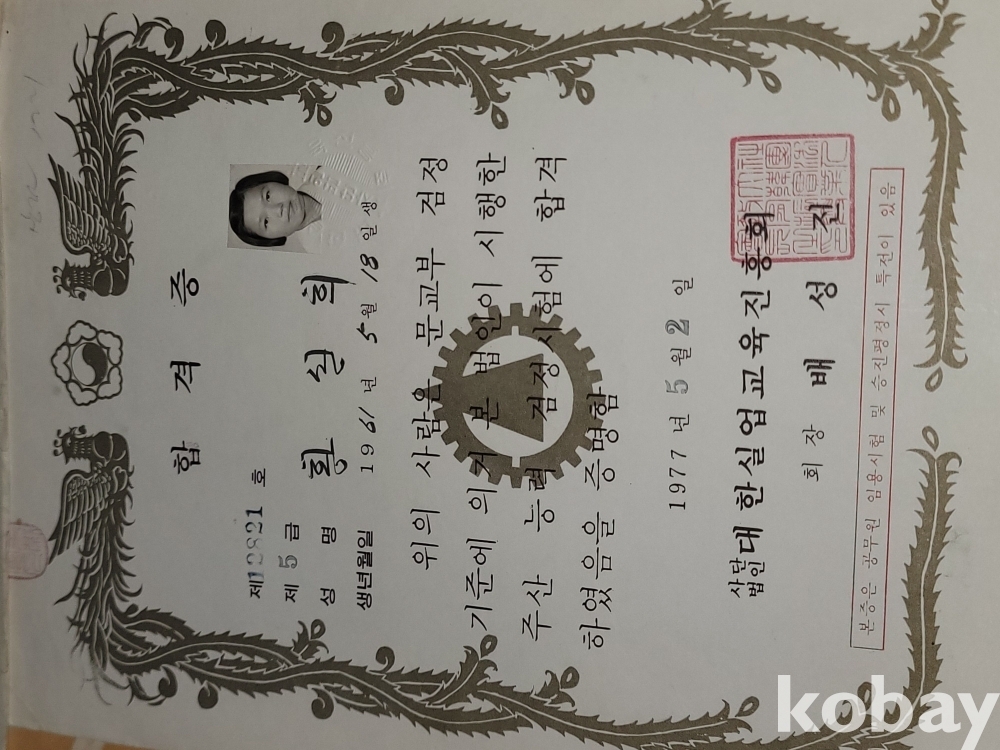 합격증
제12821호
제 5 급
성 명 황실희
생년월일 1961년 5월 18일생
위의 사람은 문교부 검정
기준에 의거 본 법인이 시행한
주산 능력 검정시험에 합격
하였음을 증명함
1977년 5월 2일
사단법인 대한실업교육진흥회
회장 배성진
본증은 공무원 임용시험 및 승진평정시 특전이 있음
kobay